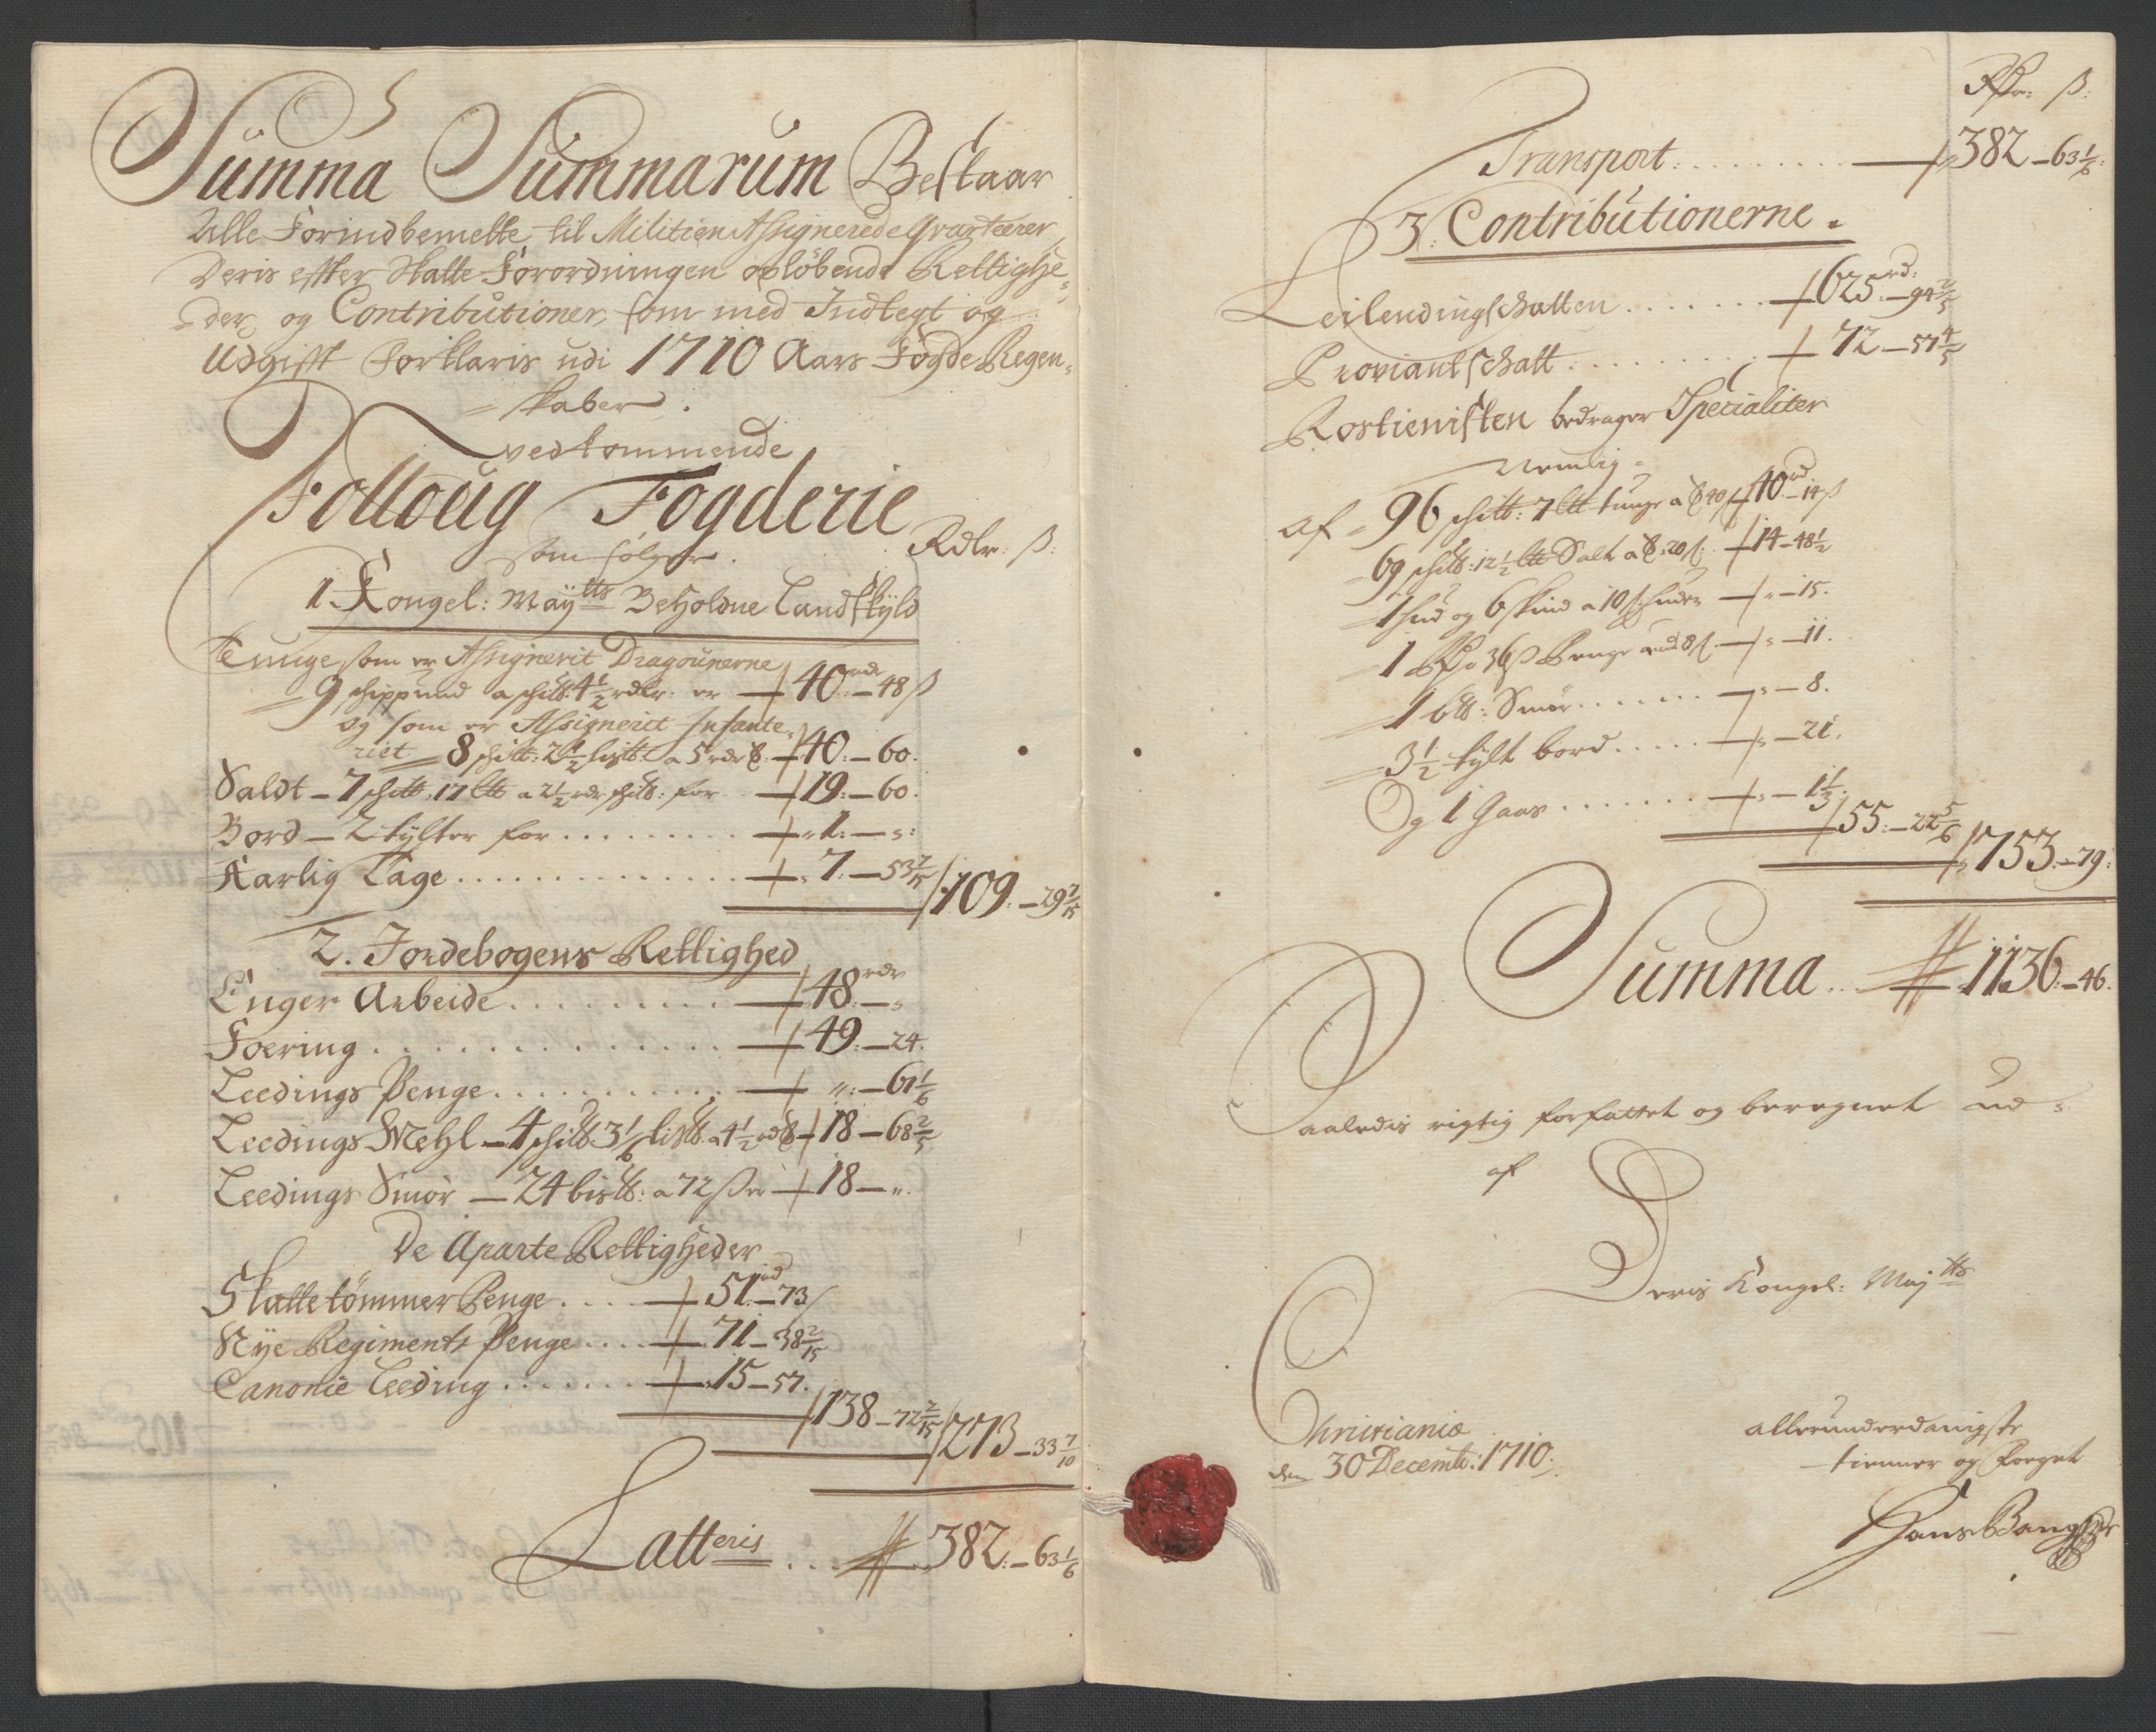 Summa Summarum Bestaar
Alle Forindbemelte til Militien Assignerede Qvarteerer,
Deris effter Skatte-Forordningen opløbende Rettighe-
der og Contributioner, som med Indtegt og
Udgifft Forklaris udi 1710 Aars Fogde Regen-
skaber.
vedkommende
Folloug Fogderie
som følger. Rdlr: ß:
1. Kongel: Maytts Beholdne Landskyld
Tunge som er Assignerit Dragounerne
9 schippund a schilb: 4 1/2 rdlr: er 40 rdr - 48 ß
og som er Assignerit Infante-
riet 8 schill: 2 1/2 lislb: a 5 rdr 40: - 60.
Saldt - 7 schilb 17 ltt a 2 1/2 rdr schilb: for 19: - 60.
Bord - 2 tylter for . . . . . . . . . 1: - ":
Aarlig Tage . . . . . . . . . . . . . . 7: - 53 7/15 109: - 29 7/15
2. Jordebogens Rettighed
Enger Arbeide . . . . . . . . . 48: rdr - "
Foering . . . . . . . . . . . . . . 49: - 24.
Leedings Penge . . . . . . . . . . ": - 61 1/6
Leedings Mehl - 4 schilb 3 1/6 lislb a 4 1/2 rd 18 - 68 2/5
Leedings Smør - 24 bislb: a 72 ß er 18 - ".
De Aparte Rettigheder
Skattetømmer Penge . . . . 51 rd - 73 ß
Nye Regiments Penge . . . . 71 - 38 2/15
Canonie Leeding . . . . . . . 15 - 57.
138 - 72 2/15 273 - 33 7/10
Latteris . . . 382: - 63 1/6
Rdr: ß:
Transport: . . . . . . . . . 382 - 63 1/6:
3. Contributionerne.
Leilendingschatten . . . . . . . 625 rd: - 94 2/5
Proviantschatt . . . . . . . . . 72 - 57 4/5
Rostienisten bedrager Specialiter
Nemlig
af 96 schilb: 7 ltt tunge a 40 ß 40 rd - 14 ß
69 schilb: 12 1/2 ltt Salt a 20 ß: 14 - 48 1/2
1 hud og 6 skind a 10 ß huden " - 15.
1 Rdr 36 ß Penge 8 ß " - 11.
1 blb: Smør . . . . . . " - 8.
3 1/2 tylt bord . . . . . " - 21.
Og 1 Gaas . . . . . . . " - 1 1/3.
55: - 22 5/6 753: - 79:
Summa . . 1136: - 46.
Saaledis rigtig forfattet og beregnet ud-
af
Deris Kongel: Majtts
Christiania
den 30 Decembr: 1710.
allerunderdanigste
tienner og Foeget
Hans Bang